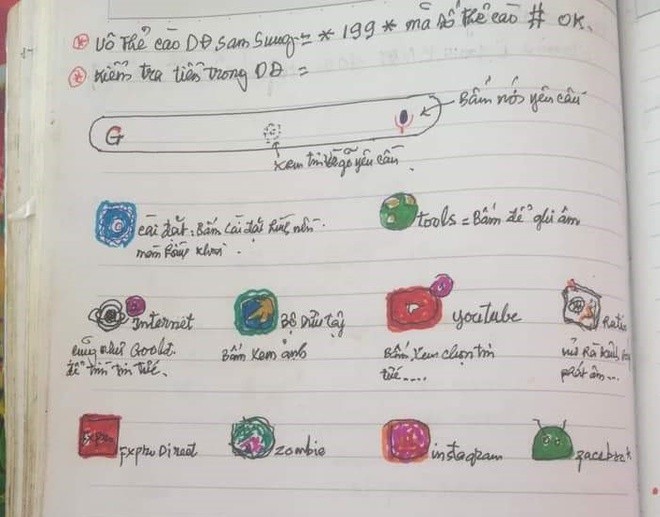 Vô thẻ cào DĐ Sam Sung = * 199 * mã số thẻ cào # OK.
Kiểm tra tiền trong DĐ =
G
Bấm nói yêu cầu
Xem tin gõ yêu cầu
Cài đặt: Bấm cài đặt hình nền
màn hình khóa
tools = Bấm để ghi âm
Internet
cũng như Google
để tìm tin tức.
Bộ sưu tập
Bấm xem ảnh
youtube
Bấm xem chọn tin
tức.....
Ratio
phát âm...
Expru Direct
zombie
instagram